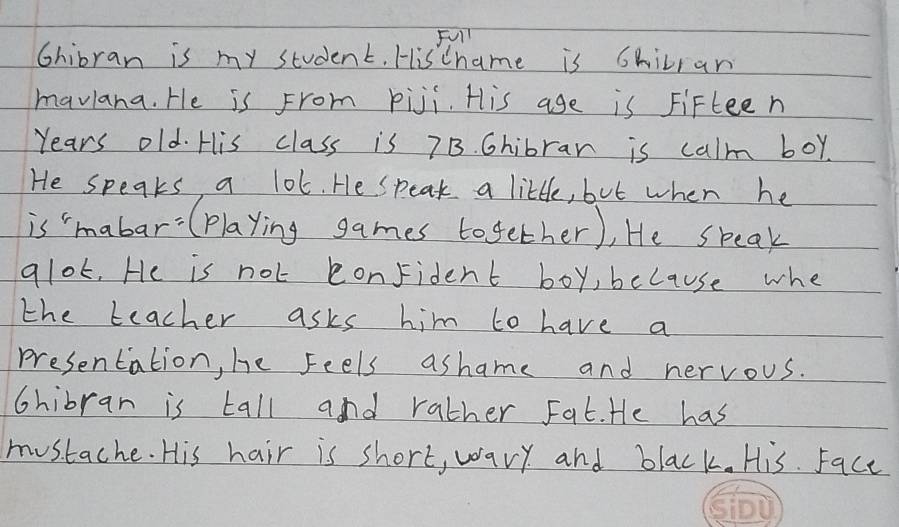 Full
Ghibran is my student. His name is Ghibran
maulana. He is From Piji. His age is FiFteen
Years old. His class is 7B. Ghibran is calm boy.
He speaks a lot. He speak a little, but when he
is "mabar" (Playing games together), He speak
alot. He is not conFident boy, because whe
the teacher asks him to have a
presentation, he Feels ashame and nervous.
Ghibran is tall and rather Fat. He has
mustache. His hair is short, wavy and black. His. Face
SiDU